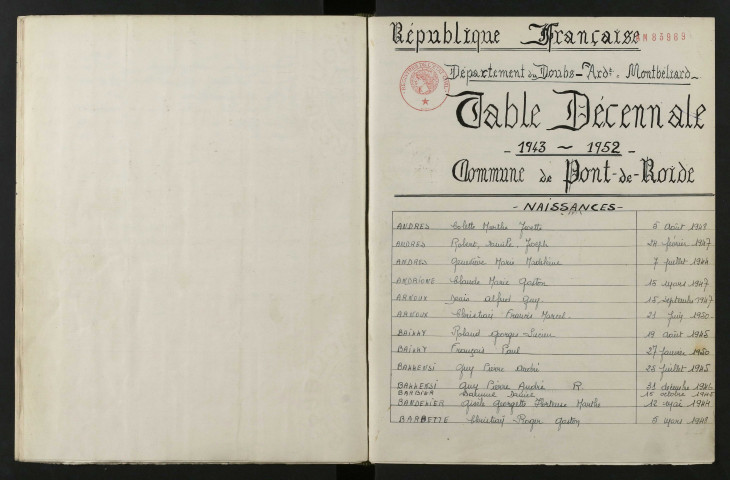 République Française M 85989
Département du Doubs - Ardt. Montbéliard
Table Décennale
- 1943 ~ 1952 -
Commune de Pont-de-Roide
- NAISSANCES -
ANDRES Colette Marthe Yvette 6 Août
ANDRES Robert, Joseph 28 février 1947
ANDRES Geneviève Marie Madeleine 7 juillet 1944
Claude Marie Gaston 15 mars 1947
ARNOUX Denis Alfred Guy 15 septembre 1947
ARNOUX Christian Francis Marcel 21 Juin 1950
BAINAY Roland Georges Lucien 19 août 1945
BAINAY François Paul 27 Janvier 1950
Guy Pierre André 23 juillet 1945
Guy Pierre André R 31 décembre 1946
BARBIER 15 octobre 1945
BARDENIER Gisèle Georgette Hortense Marthe 12 mai 1944
BARBETTE Christian Roger Gaston 5 mars 1948